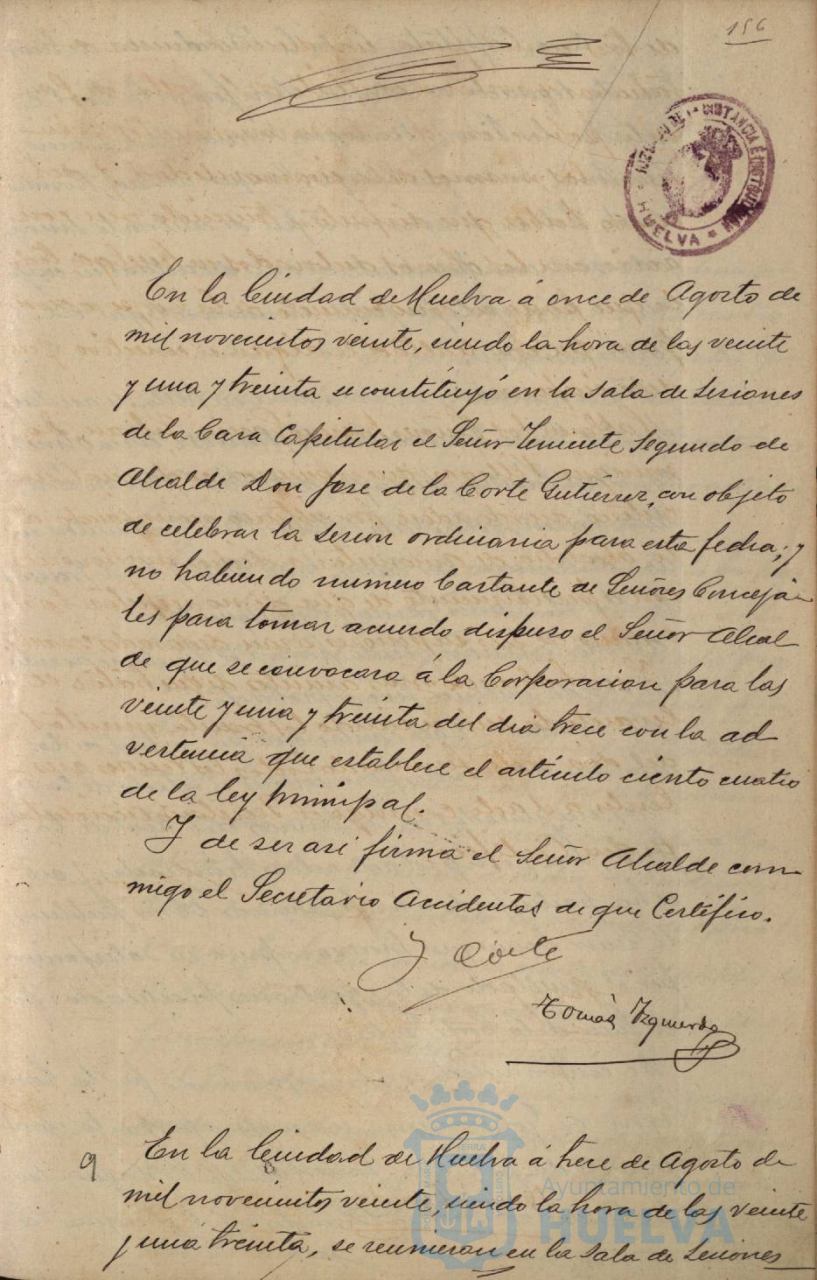 156
JUZGADO DE 1ª INSTANCIA É INSTRUCCIÓN
* HUELVA *
En la Ciudad de Huelva á once de Agosto de
mil novecientos veinte, siendo la hora de las veinte
y una y treinta se constituyó en la Sala de Sesiones
de la Casa Capitular el Señor Teniente Segundo de
Alcalde Don José de la Corte Gutiérrez, con objeto
de celebrar la sesion ordinaria para esta fecha; y
no habiendo numero bastante de Señores Conceja-
les para tomar acuerdo dispuso el Señor Alcal
de que se convocara á la Corporacion para las
veinte y una y treinta del dia trece con la ad
vertencia que establece el artículo ciento cuatro
de la ley municipal.
Y de ser asi firma el Señor Alcalde con-
migo el Secretario Accidental de que Certifico.
J Corte
Tomás Izquierdo
9 En la Ciudad de Huelva á trece de Agosto de
mil novecientos veinte, siendo la hora de las veinte
y una treinta, se reunieron en la Sala de Sesiones
Ayuntamiento de
HUELVA